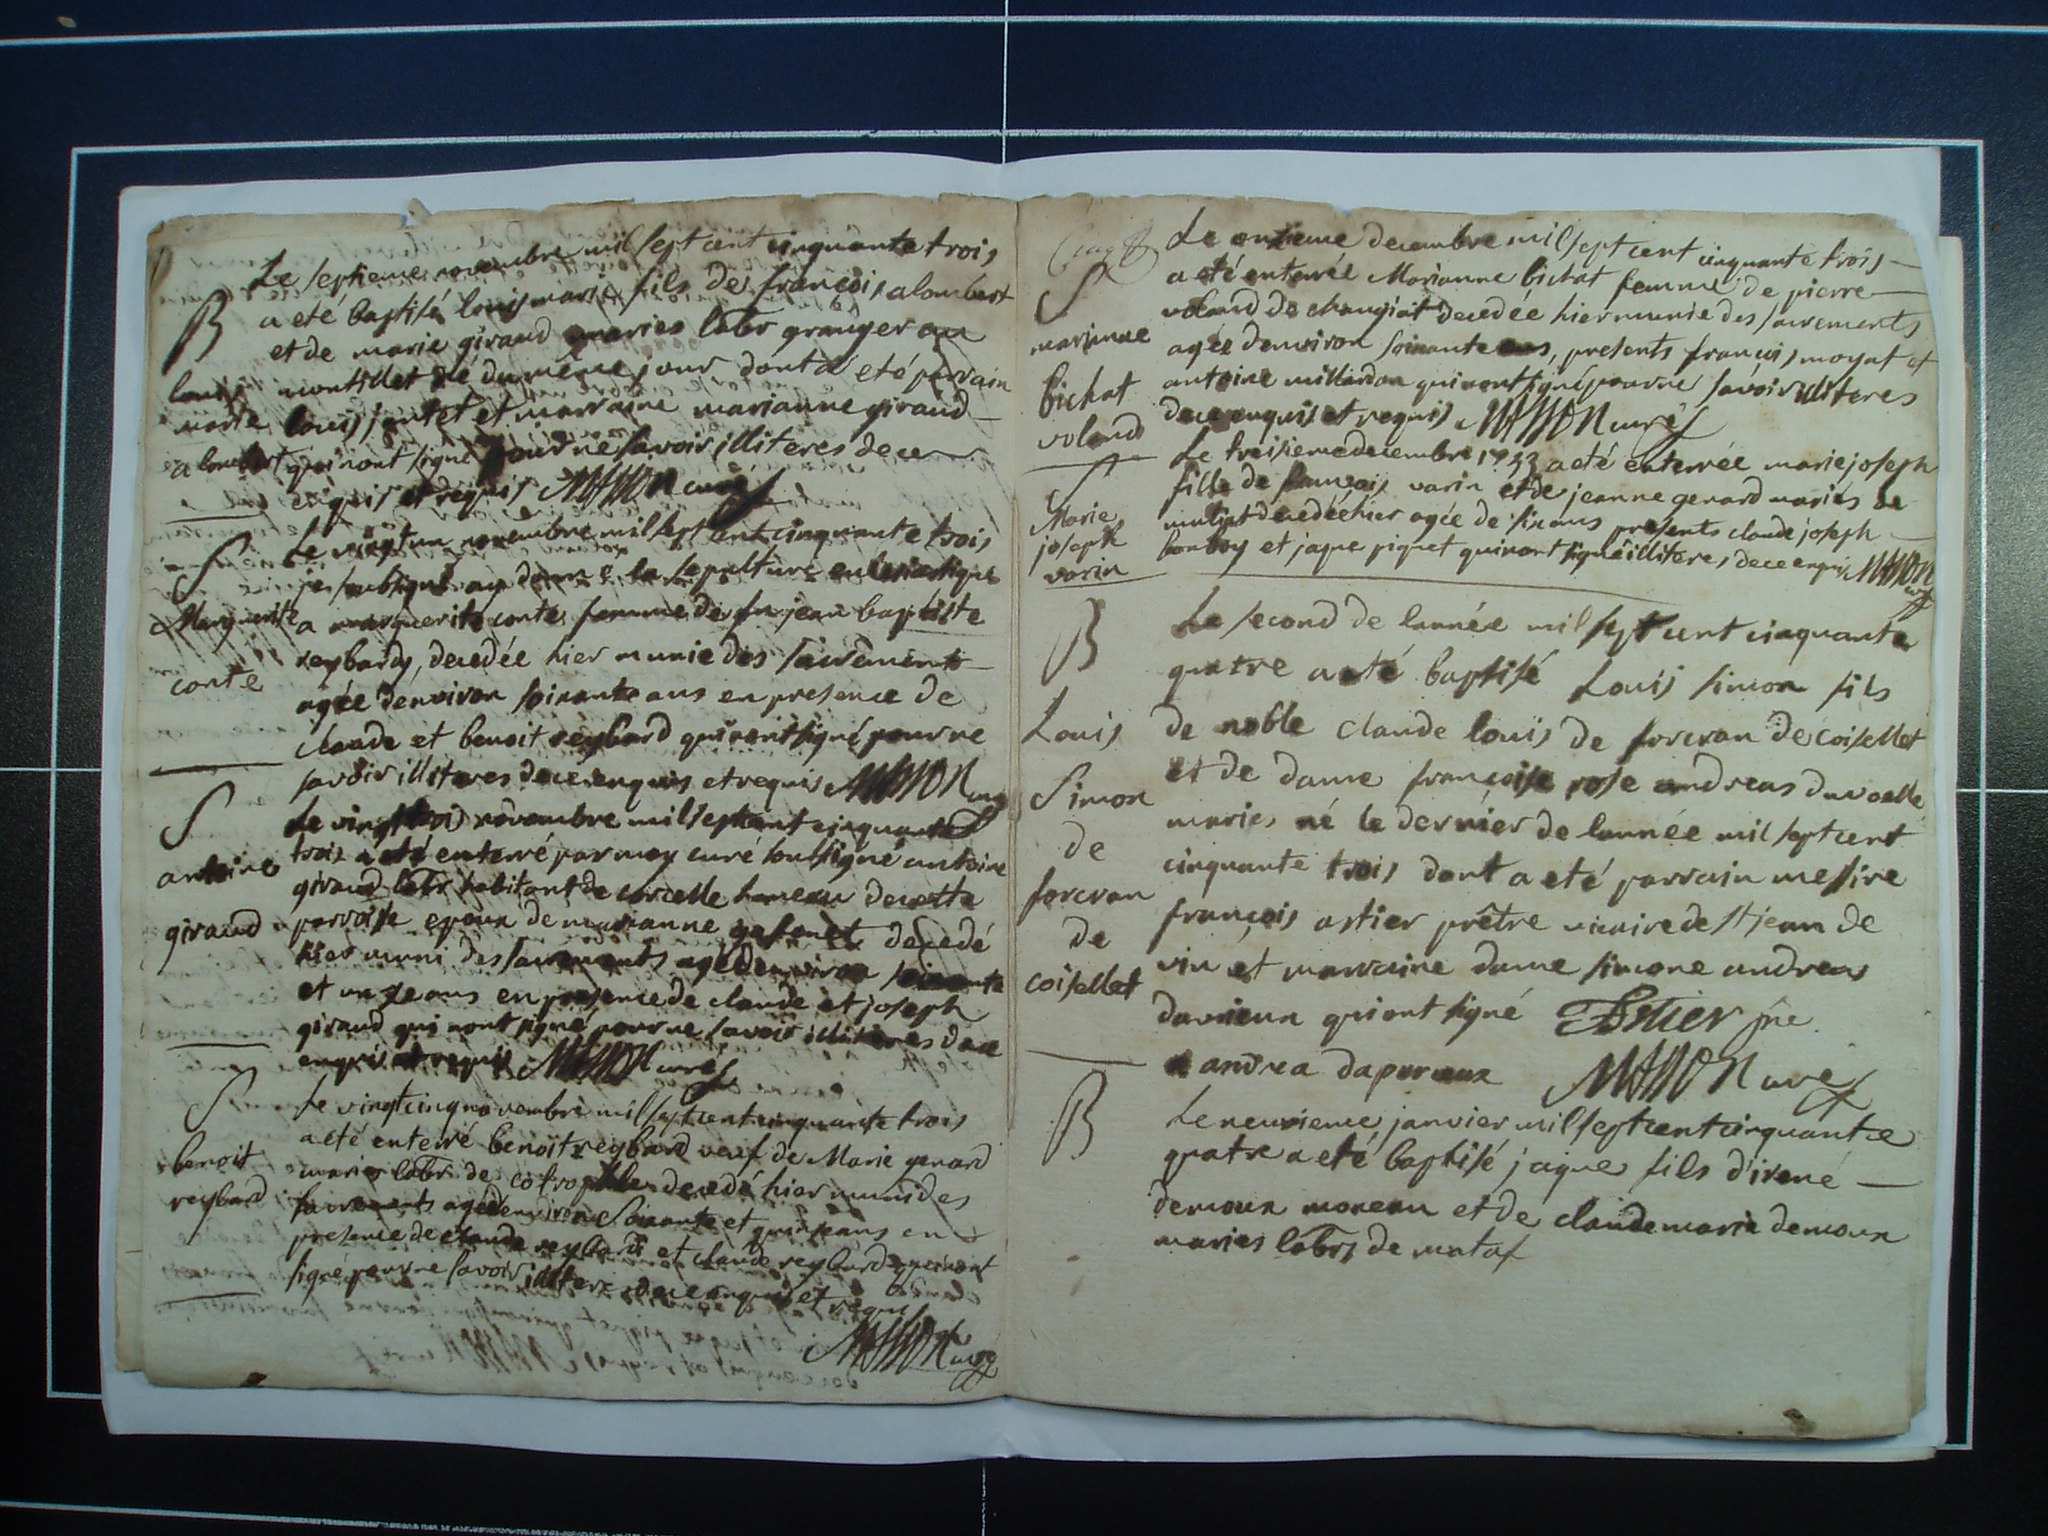 Le septieme novembre mil sept cent cinquante trois
B
a eté baptisé louis marie fils de françois alombert
et de marie giraud maries labr granger au
louis
montillet né du même jour dont a eté parrain
marie
louis jantet et marraine marianne giraud
alombert
qui nont signé pour ne savoir illiteres de ce
enquis et requis MASSON curé
S
Le vingt un novembre mil sept cent cinquante trois
je soubsigné ay donné la sepulture eclesiastique
Marguerite
a marguerite conte femme de fu jean baptiste
conte
reybard, decedée hier munie des sacrements
agée denviron soixante ans en presence de
claude et benoit reybard qui nont signé pour ne
savoir illiteres de ce enquis et requis MASSON curé
S
Le vingt trois novembre mil sept cent cinquante
antoine
trois a eté enterré par moy curé soubsigné antoine
giraud labr habitant de corcelle hameau de cette
giraud
parroisse epoux de marianne decedé
hier muni des sacrements agé denviron soixante
et onze ans en presence de claude et joseph
giraud qui nont signé pour ne savoir illiteres de ce
enquis et requis MASSON curé
S
Le vingt cinq novembre mil sept cent cinquante trois
benoit
a eté enterré benoit reybard veuf de Marie genard
reybard
maries labr de decedé hier muni des
sacrements agé denviron soixante et quinze ans en
presence de claude reybard et claude reybard qui nont
signé pour ne savoir illiteres de ce enquis et requis
MASSON curé
Le onzieme decembre mil sept cent cinquante trois
S
a eté enterrée Marianne bichat femme de pierre
marianne
voland de changiat decedée hier munie des sacrements
bichat
agée denviron soixante ans, presents françois moyat et
voland
antoine millardon qui nont signé pour ne savoir illiteres
de ce enquis et requis MASSON curé
S
Le treisieme decembre 1753 a eté enterrée marie joseph
Marie
fille de françois varin et de jeanne genard mariés de
joseph
decedée hier agée de six ans presents claude joseph
varin
bonboy et jaque piquet qui nont signé illiteres, de ce enquis MASSON curé
B
Le second de lannée mil sept cent cinquante
quatre a eté baptisé Louis simon fils
Louis
de noble claude louis de forcran de coisellet
Simon
et de dame françoise rose andreas
de
maries né le dernier de lannée mil sept cent
forcran
cinquante trois dont a eté parrain messire
de
françois astier prêtre vicaire de St jean de
coisellet
vin et marraine dame simone andreas
qui ont signé Astier ptre
andrea MASSON curé
B
Le neuvieme janvier mil sept cent cinquante
quatre a eté baptisé jaque fils d'irené
demoux moreau et de claudemarie demoux
maries labrs de mataf